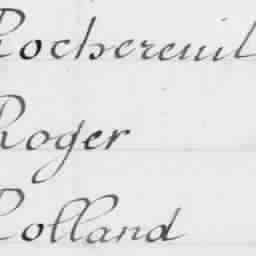 Rochereuil
Roger
Rolland